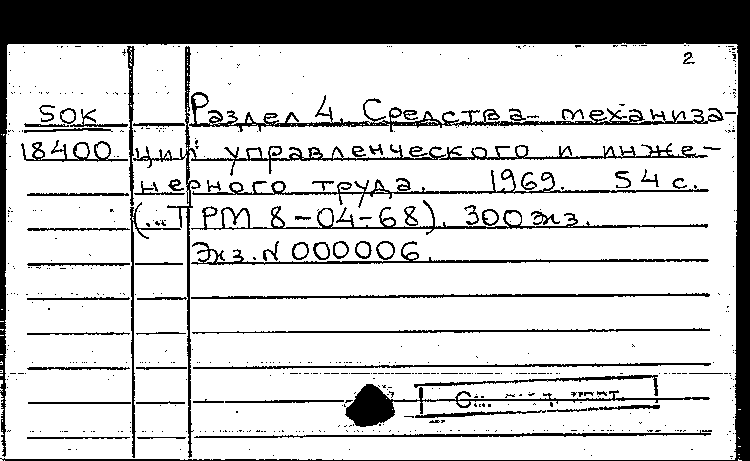 2
50К Раздел 4. Средства механиза-
18400 ции управленческого и инже-
нерного труда. 1969. 54 с.
(...ТРМ 8-04-68). 300 экз.
Экз. N 000006.